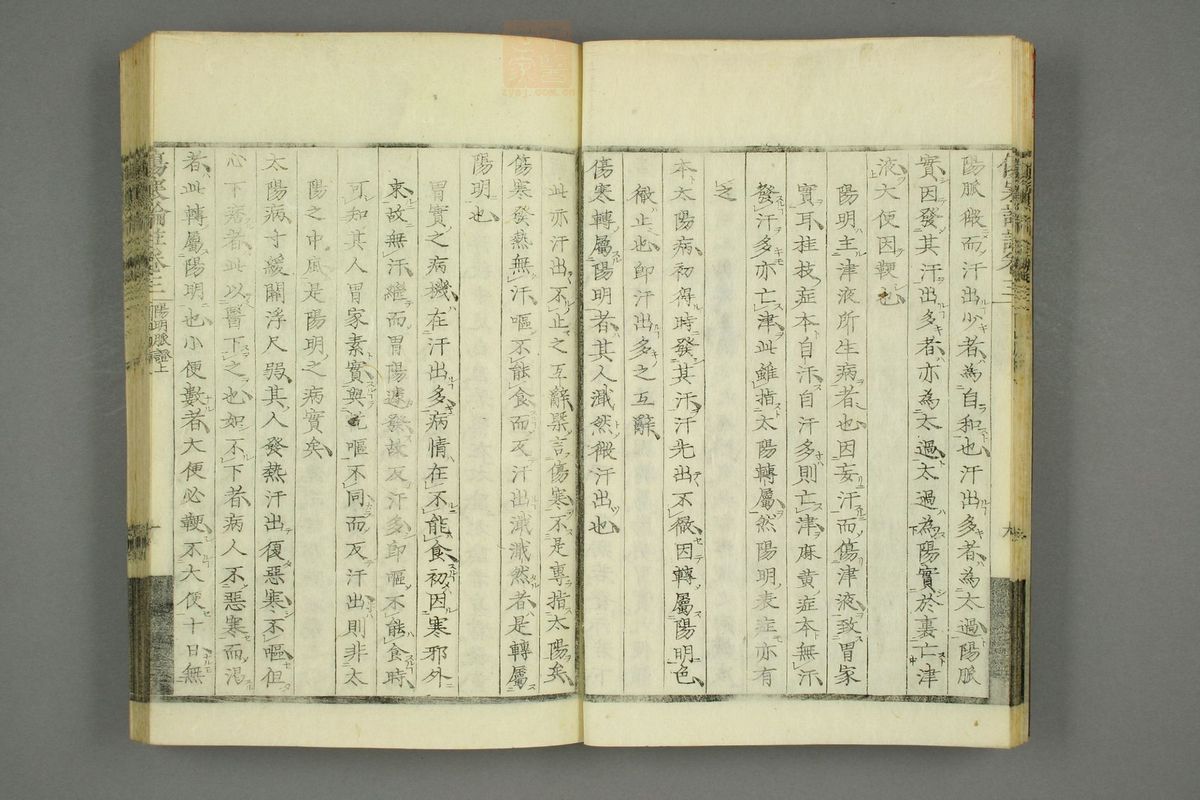 陽脈微而汗出少者為自和也汗出多者為太過陽脈
實因發其汗出多者亦為太過太過為陽實於裏亡津
液大便因鞕也
陽明主津液所生病者也因妄汗而傷津液致胃家
實耳桂枝症本自汗自汗多則亡津麻黃症本無汗
發汗多亦亡津此雖指太陽轉屬然陽明表症亦有
之
本太陽病初得時發其汗汗先出不徹因轉屬陽明也
徹止也即汗出多之互辭
傷寒轉屬陽明者其人濈然微汗出也
此亦汗出不止之互辭槩言傷寒不是專指太陽矣
傷寒發熱無汗嘔不能食而反汗出濈濈然者是轉屬
陽明也
胃實之病機在汗出多病情在不能食初因寒邪外
束故無汗繼而胃陽遽發故反汗多即嘔不能食時
可知其人胃家素實與乾嘔不同而反汗出則非太
陽之中風是陽明之病實矣
太陽病寸緩關浮尺弱其人發熱汗出復惡寒不嘔但
心下痞者此以醫下之也如不下者病人不惡寒而渴
者此轉屬陽明也小便數者大便必鞕不大便十日無
傷寒論註卷三
陽明脈證上